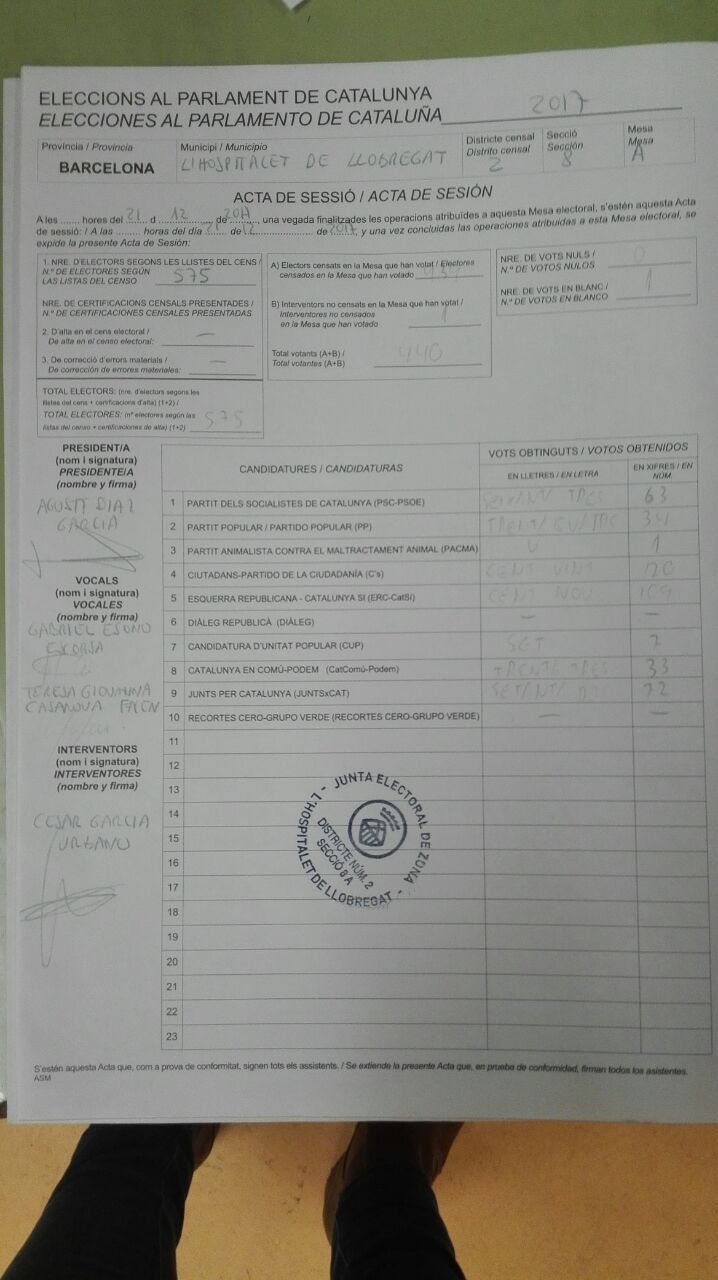 ELECCIONS AL PARLAMENT DE CATALUNYA
ELECCIONES AL PARLAMENTO DE CATALUÑA 2017
Província / Provincia
BARCELONA
Municipi / Municipio
L'HOSPITALET DE LLOBREGAT
Districte censal
Distrito censal
2
Secció
Sección
8
Mesa
Mesa
A
ACTA DE SESSIÓ / ACTA DE SESIÓN
A les ....... hores del 21 d 12 de 2017, una vegada finalitzades les operacions atribuïdes a aquesta Mesa electoral, s'estén aquesta Acta
de sessió: / A las ......... horas del día 21 de 12 de 2017 y una vez concluidas las operaciones atribuidas a esta Mesa electoral, se
expide la presente Acta de Sesión:
1. NRE. D'ELECTORS SEGONS LES LLISTES DEL CENS /
N.º DE ELECTORES SEGÚN
LAS LISTAS DEL CENSO 575
NRE. DE CERTIFICACIONS CENSALS PRESENTADES /
N.º DE CERTIFICACIONES CENSALES PRESENTADAS
2. D'alta en el cens electoral /
De alta en el censo electoral: —
3. De correcció d'errors materials /
De corrección de errores materiales: —
TOTAL ELECTORS: (nre. d'electors segons les
llistes del cens + certificacions d'alta) (1+2) /
TOTAL ELECTORES: (nº electores según las
listas del censo + certificaciones de alta) (1+2) 575
A) Electors censats en la Mesa que han votat / Electores
censados en la Mesa que han votado 439
B) Interventors no censats en la Mesa que han votat /
Interventores no censados
en la Mesa que han votado 1
Total votants (A+B) /
Total votantes (A+B) 440
NRE. DE VOTS NULS /
N.º DE VOTOS NULOS 0
NRE. DE VOTS EN BLANC /
N.º DE VOTOS EN BLANCO 1
PRESIDENT/A
(nom i signatura)
PRESIDENTE/A
(nombre y firma)
AGUSTI DIAZ
GARCIA
VOCALS
(nom i signatura)
VOCALES
(nombre y firma)
GABRIEL
TERESA GIOVANNA
CASANOVA
INTERVENTORS
(nom i signatura)
INTERVENTORES
(nombre y firma)
CESAR GARCIA
URBANO
CANDIDATURES / CANDIDATURAS
VOTS OBTINGUTS / VOTOS OBTENIDOS
EN LLETRES / EN LETRA
EN XIFRES / EN NÚM.
1 PARTIT DELS SOCIALISTES DE CATALUNYA (PSC-PSOE) SEIXANTA TRES 63
2 PARTIT POPULAR / PARTIDO POPULAR (PP) 34
3 PARTIT ANIMALISTA CONTRA EL MALTRACTAMENT ANIMAL (PACMA) U 1
4 CIUTADANS-PARTIDO DE LA CIUDADANÍA (C's) CENT VINT 120
5 ESQUERRA REPUBLICANA - CATALUNYA SÍ (ERC-CatSí) CENT NOU 109
6 DIÀLEG REPUBLICÀ (DIÀLEG) — —
7 CANDIDATURA D'UNITAT POPULAR (CUP) SET 7
8 CATALUNYA EN COMÚ-PODEM (CatComú-Podem) TRENTA TRES 33
9 JUNTS PER CATALUNYA (JUNTSxCAT) 72
10 RECORTES CERO-GRUPO VERDE (RECORTES CERO-GRUPO VERDE) — —
11
12
13
14
15
16
17
18
19
20
21
22
23
JUNTA ELECTORAL DE ZONA
- L'HOSPITALET DE LLOBREGAT -
DISTRICTE NÚM. 2
SECCIÓ 8 A
S'estén aquesta Acta que, com a prova de conformitat, signen tots els assistents. / Se extiende la presente Acta que, en prueba de conformidad, firman todos los asistentes.
ASM